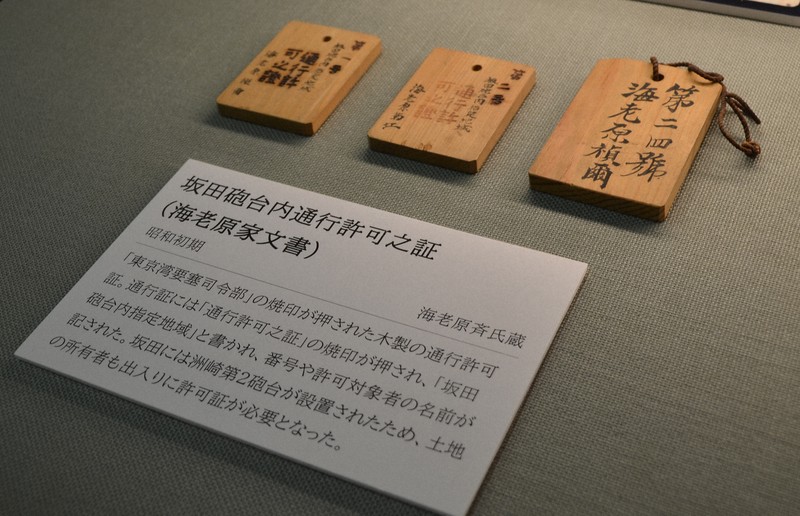 第一号
通行許
可之證
第二号
通行許
可之證
第二四號
海老原禎爾
坂田砲台内通行許可之証
（海老原家文書）
昭和初期
海老原斉氏蔵
「東京湾要塞司令部」の焼印が押された木製の通行許可
証。通行証には「通行許可之証」の焼印が押され、「坂田
砲台内指定地域」と書かれ、番号や許可対象者の名前が
記された。坂田には洲崎第2砲台が設置されたため、土地
の所有者も出入りに許可証が必要となった。